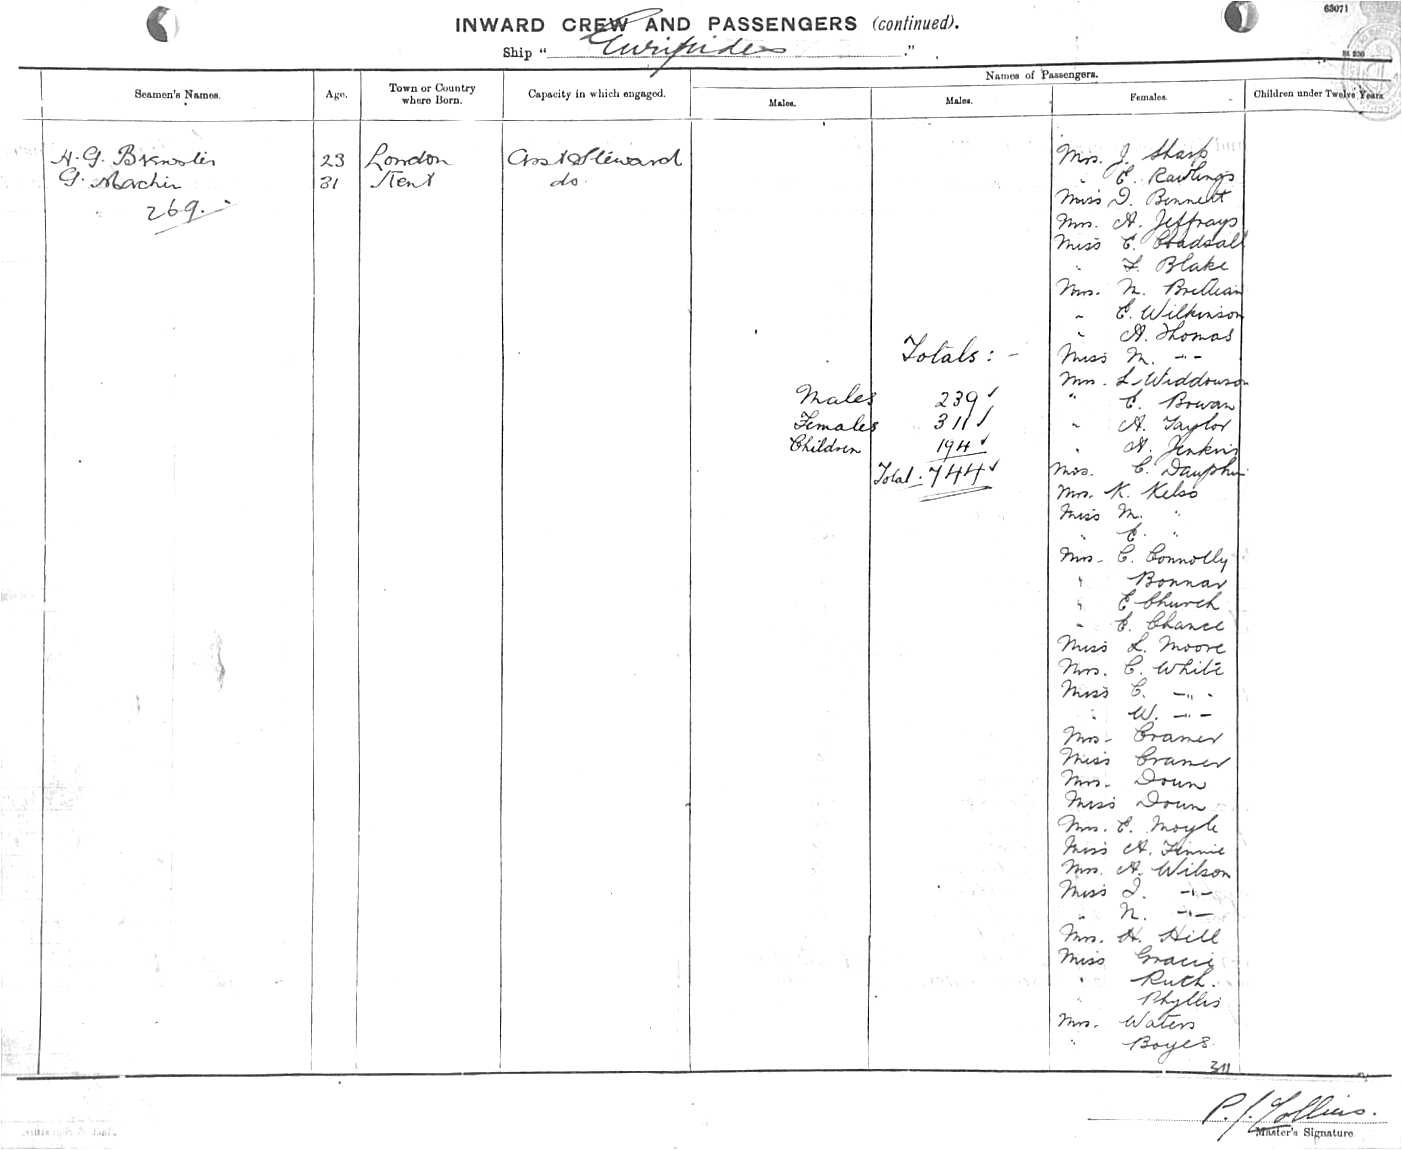 63071
INWARD CREW AND PASSENGERS (continued).
Ship "Euripides"
Names of Passengers.
Seamen's Names. Age. Town or Country where Born. Capacity in which engaged. Males. Males. Females. Children under Twelve Years
H. G. 23 London Asst Steward
G. Machin 31 Kent do.
269.
Mrs. J. Sharp
" E. Rawlings
Miss D. Bennett
Mrs. A. Jeffrays
Miss E. Coadsall
" F. Blake
Mrs. M.
" E. Wilkinson
" A. Thomas
Miss M. -"-
Mrs. L. Widdowson
" E. Bowan
" A. Taylor
" A. Jenkins
Mrs. C. Dauphin
Mrs. K. Kelso
Miss M. "
" E. "
Mrs. C. Connolly
" Bonnar
" E. Church
" E. Chance
Miss L. Moore
Mrs. C. White
Miss C. -"-
" W. -"-
Mrs. Cramer
Miss Cramer
Mrs. Doun
Miss Doun
Mrs. E. Moyle
Miss A. Finnie
Mrs. A. Wilson
Miss I. -"-
" N. -"-
Mrs. H. Hill
Miss Gracie
" Ruth.
" Phyllis
Mrs. Waters
" Boyes
311
Totals: -
Males 239
Females 311
Children 194
Total: 744
P. J. Collins.
Master's Signature